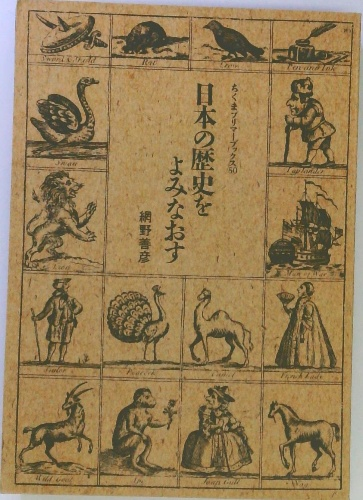 ちくまプリマーブックス50
日本の歴史を
よみなおす
網野善彦
Sword & Shield
Rat
Pen and Ink
Swan
Laplander
Lion
Man of War
Peacock
Camel
Wild Goat
Ape
Nag